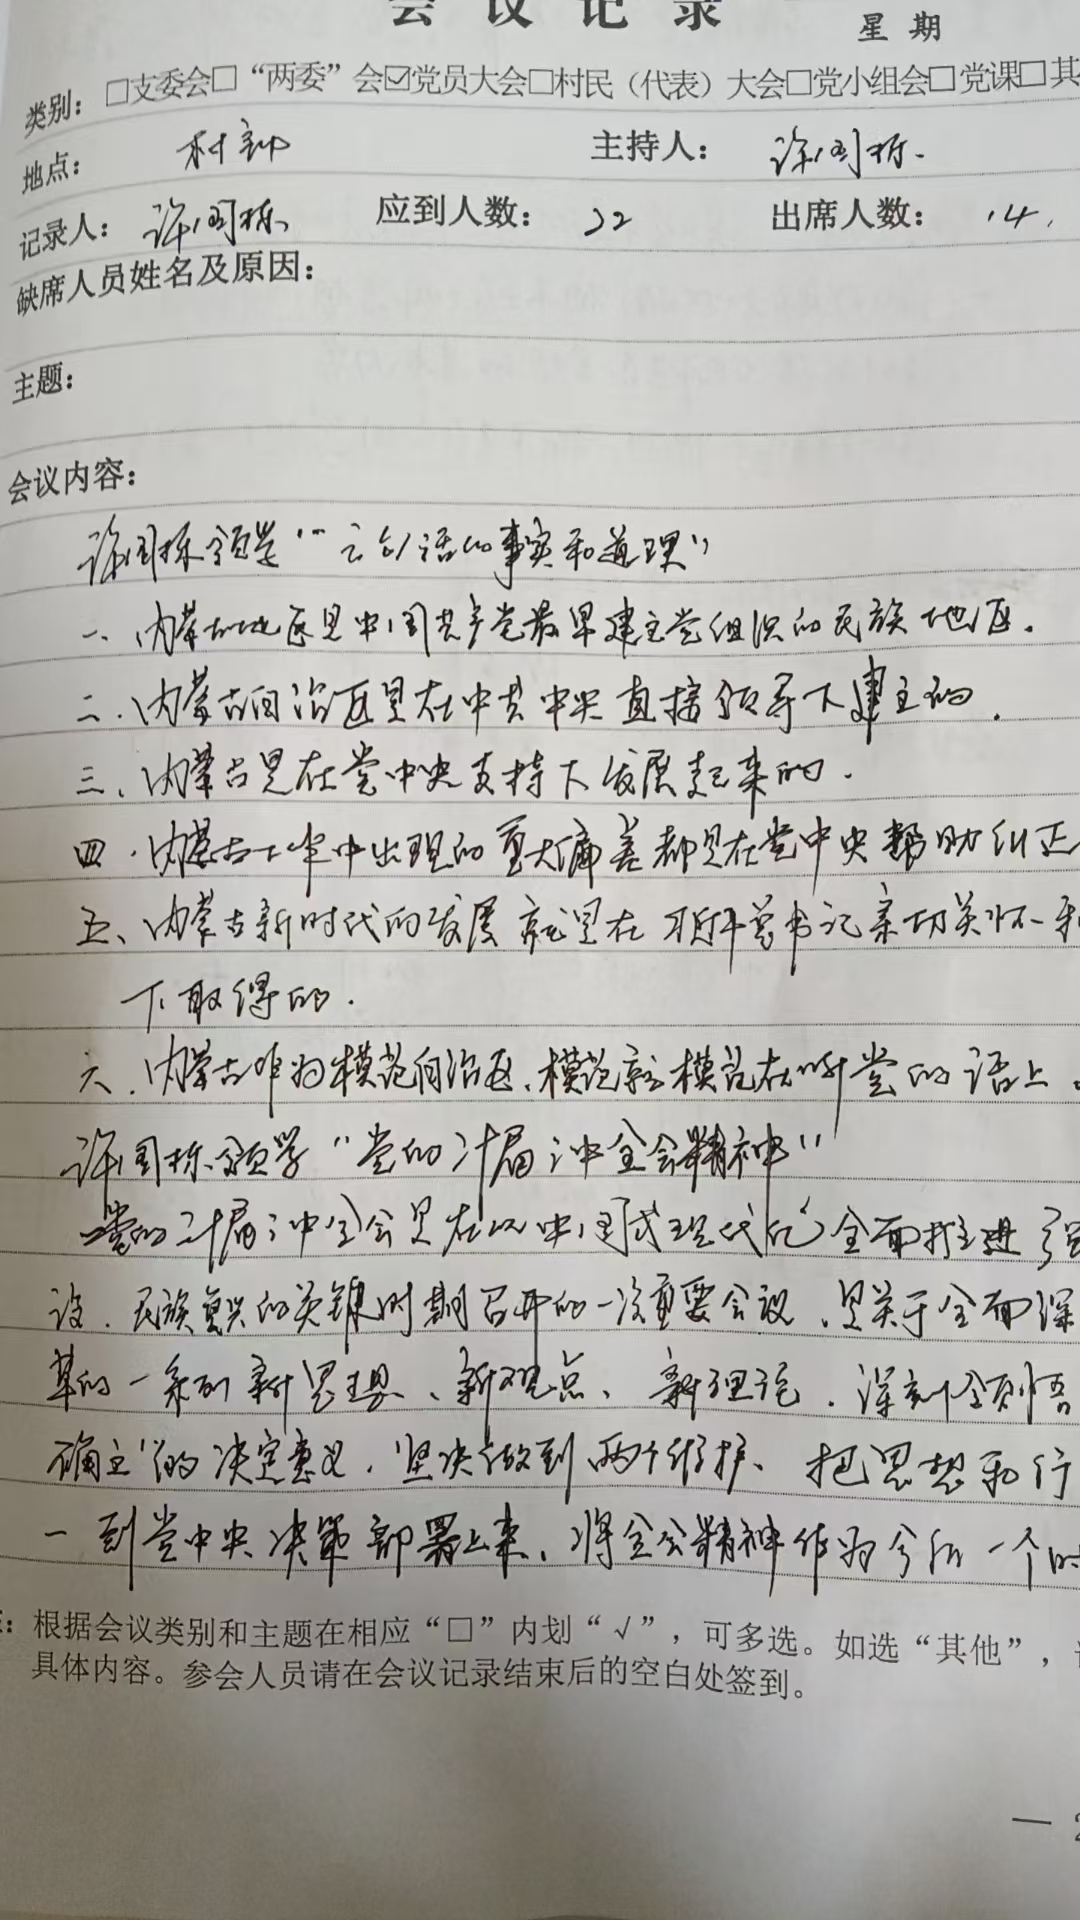 会议记录
星期
类别：□支委会□“两委”会☑党员大会□村民（代表）大会□党小组会□党课□其
地点：村部 主持人：许国栋.
记录人：许国栋 应到人数：32 出席人数：14.
缺席人员姓名及原因：
主题：
会议内容：
许国栋领学“六句话的事实和道理”
一、内蒙古地区是中国共产党最早建立党组织的民族地区.
二.内蒙古自治区是在中共中央直接领导下建立的.
三、内蒙古是在党中央支持下发展起来的.
四.内蒙古工作中出现的重大偏差都是在党中央帮助纠正
五、内蒙古新时代的发展就是在习近平总书记亲切关怀和
下取得的.
六.内蒙古作为模范自治区、模范就模范在听党的话上.
许国栋领学“党的二十届三中全会精神”
党的二十届三中全会是在以中国式现代化全面推进强
设、民族复兴的关键时期召开的一次重要会议、是关于全面深
革的一系列新思想、新观点、新理论.深刻领悟
确立”的决定意义.坚决做到两个维护、把思想和行
一到党中央决策部署上来、将全会精神作为今后一个时
：根据会议类别和主题在相应“□”内划“√”，可多选。如选“其他”，
具体内容。参会人员请在会议记录结束后的空白处签到。
— 2